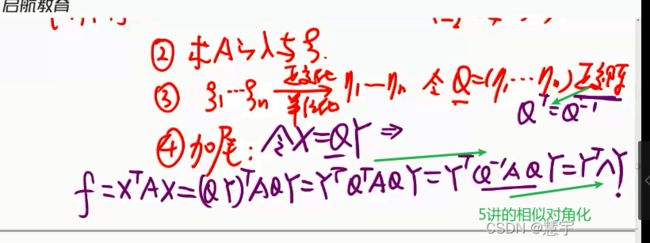 启航教育
② 求A→λ与ξ.
③ ξ₁…ξₙ 正交化 单位化 η₁…ηₙ 令Q=(η₁…ηₙ)正交阵
Qᵀ=Q⁻¹
④ 加尾: 令X=QY ⇒
f=XᵀAX=(QY)ᵀAQY=YᵀQᵀAQY=YᵀQ⁻¹AQY=YᵀΛY!
5讲的相似对角化
CSDN @慧宇